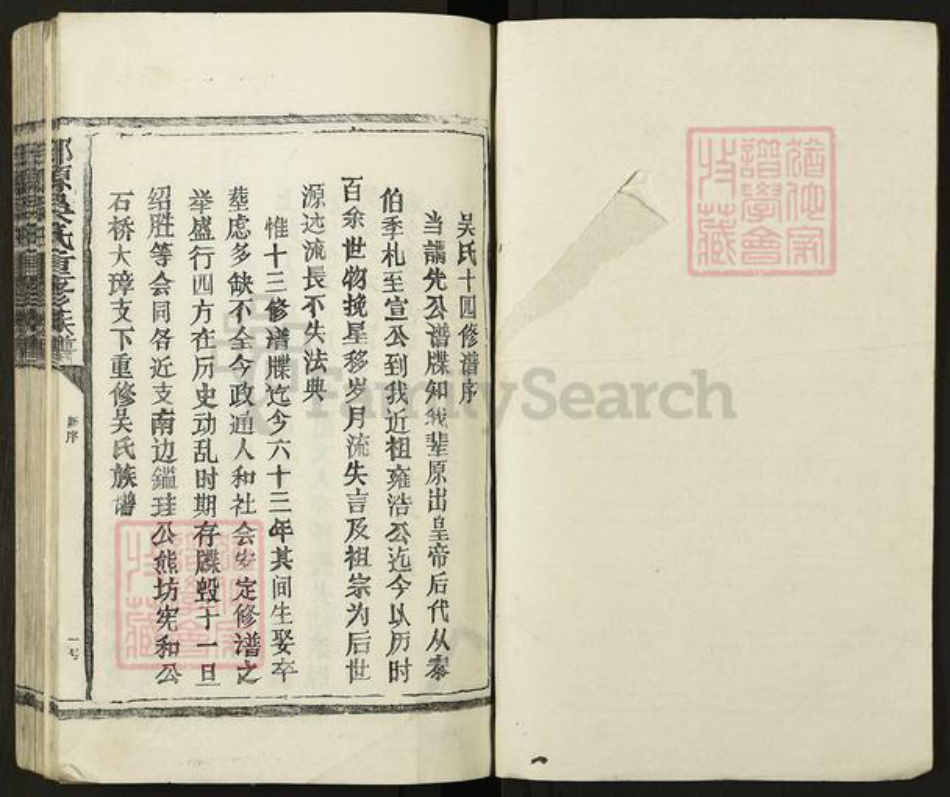 吴氏十四修谱序
当讌先公谱牒知我辈原出皇帝后代从泰
伯季札至宣公到我近祖雍浩公迄今以历时
百余世物挽星移岁月流失言及祖宗为后世
源远流長不失法典
惟十三修谱牒迄今六十三年其间生娶卒
塟虑多缺不全今政通人和社会安定修谱之
举盛行四方在历史动乱时期存牒毁于一旦
绍胜等会同各近支南边鎰珪公熊坊宪和公
石桥大璋支下重修吴氏族谱
新序
一号
吴氏重修族譜
猶他家
譜學會
收藏
FamilySearch